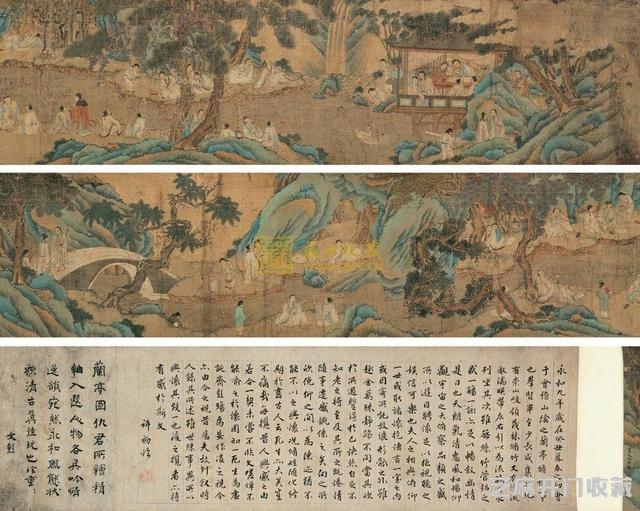 永和九年歲在癸丑暮春
于會稽山陰之蘭亭
也羣賢畢至少長咸集
有崇山峻領茂林脩竹又
湍映帶左右引以為流
列坐其次雖無絲竹管弦之
盛一觴一詠亦足以暢敘幽情
是日也天朗氣清惠風和暢仰
觀宇宙之大俯察品類之盛
所以遊目騁懷足以極視聽之
娛信可樂也夫人之相與俯仰
一世或取諸懷抱悟言一室之內
或因寄所託放浪形骸之外雖
趣舍萬殊靜躁不同當其欣
於所遇蹔得於己快然自足不
知老之將至及其所之既惓情
隨事遷感慨係之矣向之所
欣俛仰之間以為陳迹猶不
能不以之興懷況脩短隨化終
期於盡古人云死生亦大矣豈
不痛哉每攬昔人興感之由
若合一契未嘗不臨文嗟悼不
能喻之於懷固知一死生為虛
誕齊彭殤為妄作後之視今
亦由今之視昔悲夫故列敘時
人錄其所述雖世殊事異所以
興懷其致一也後之攬者亦將
有感於斯文
許初臨
蘭亭圖仇君所繪精
細入人物各具吟嘯
韻宛然永和風態狀
類清古真佳玩也珍重
文彭
芝麻开门收藏